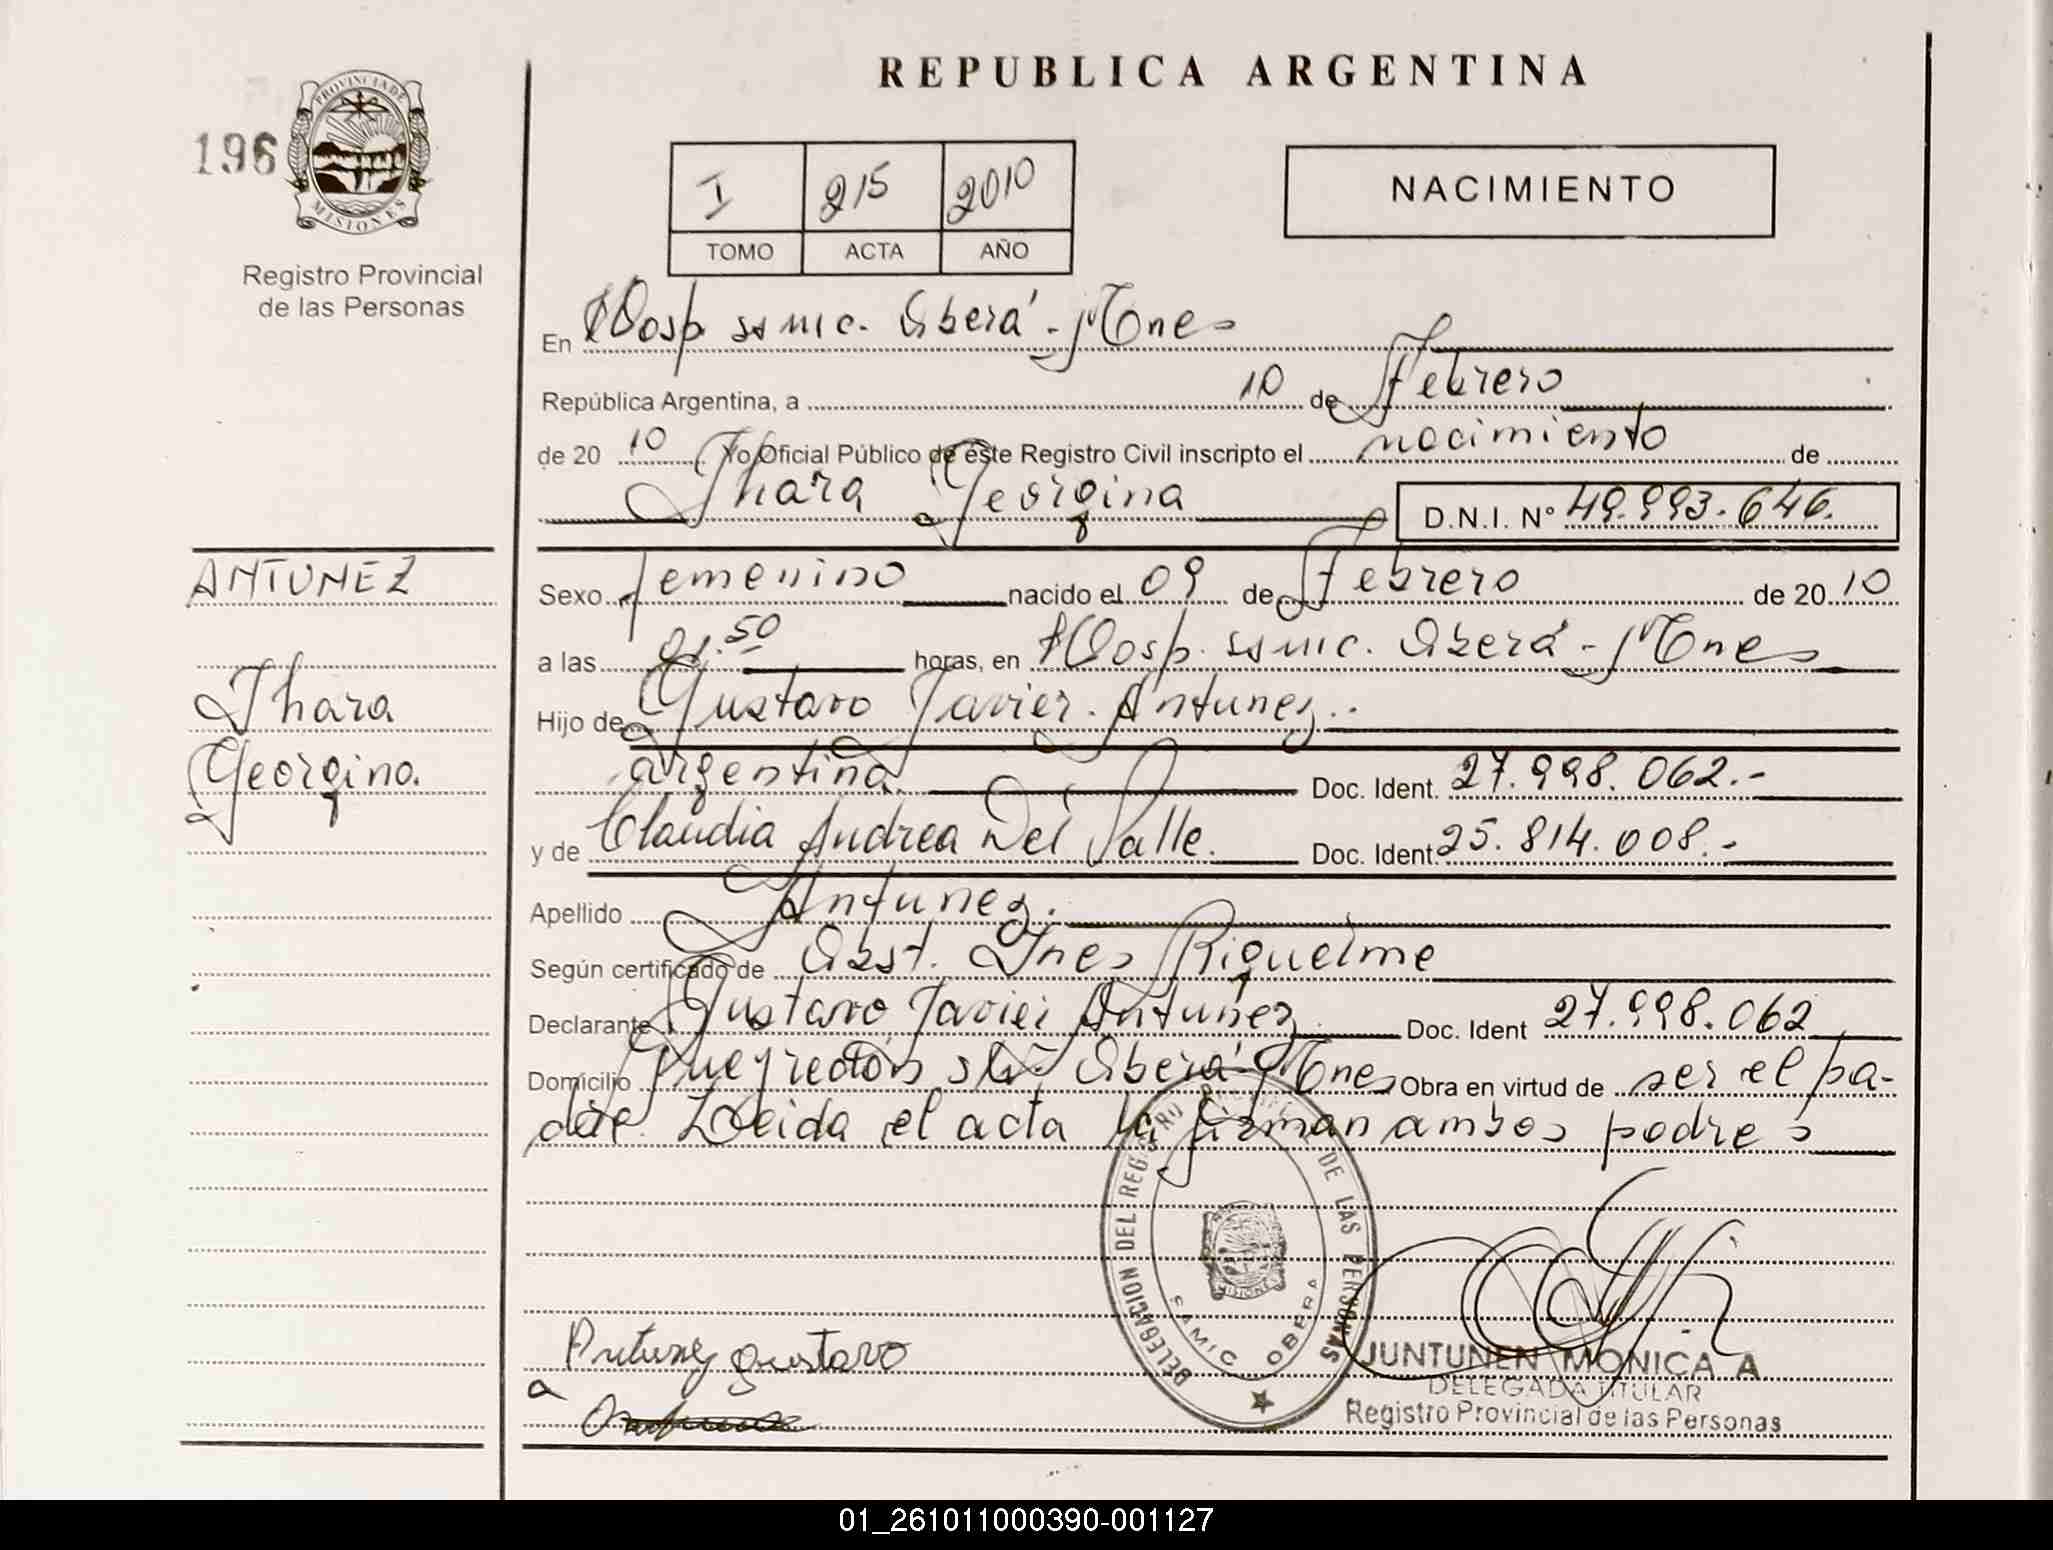 REPUBLICA ARGENTINA
196
PROVINCIA DE
MISIONES
Registro Provincial
de las Personas
I 215 2010
TOMO ACTA AÑO
NACIMIENTO
En Hosp ssmic. Oberá - Mnes
República Argentina, a 10 de Febrero
de 20 10 Yo Oficial Público de este Registro Civil inscripto el nacimiento de
Jhara Georgina D.N.I. Nº 49.993.646.
ANTUNEZ
Jhara
Georgina.
Sexo femenino nacido el 09 de Febrero de 20 10
a las 21.50 horas, en Hosp. ssmic. Oberá - Mnes
Hijo de Gustavo Javier Antunez.
argentina Doc. Ident. 27.998.062.-
y de Claudia Andrea Del Valle. Doc. Ident 25.814.008.-
Apellido Antunez.
Según certificado de Obst. Ines Riquelme
Declarante Gustavo Javier Antunez Doc. Ident 27.998.062
Domicilio Pueyrredón s/n Oberá Mnes Obra en virtud de ser el pa-
dre. Leida el acta la firman ambos padres
DELEGACION DEL REGISTRO PROVINCIAL DE LAS PERSONAS
SAMIC OBERA
MISIONES
Antunez gustavo
a
JUNTUNEN MONICA A
DELEGADA TITULAR
Registro Provincial de las Personas
01_261011000390-001127